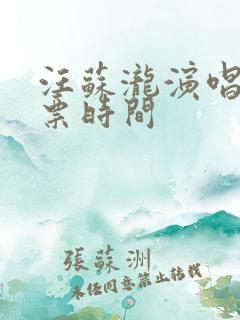 汪蘇瀧演唱
票時間
張蘇洲
未經同意禁止轉載